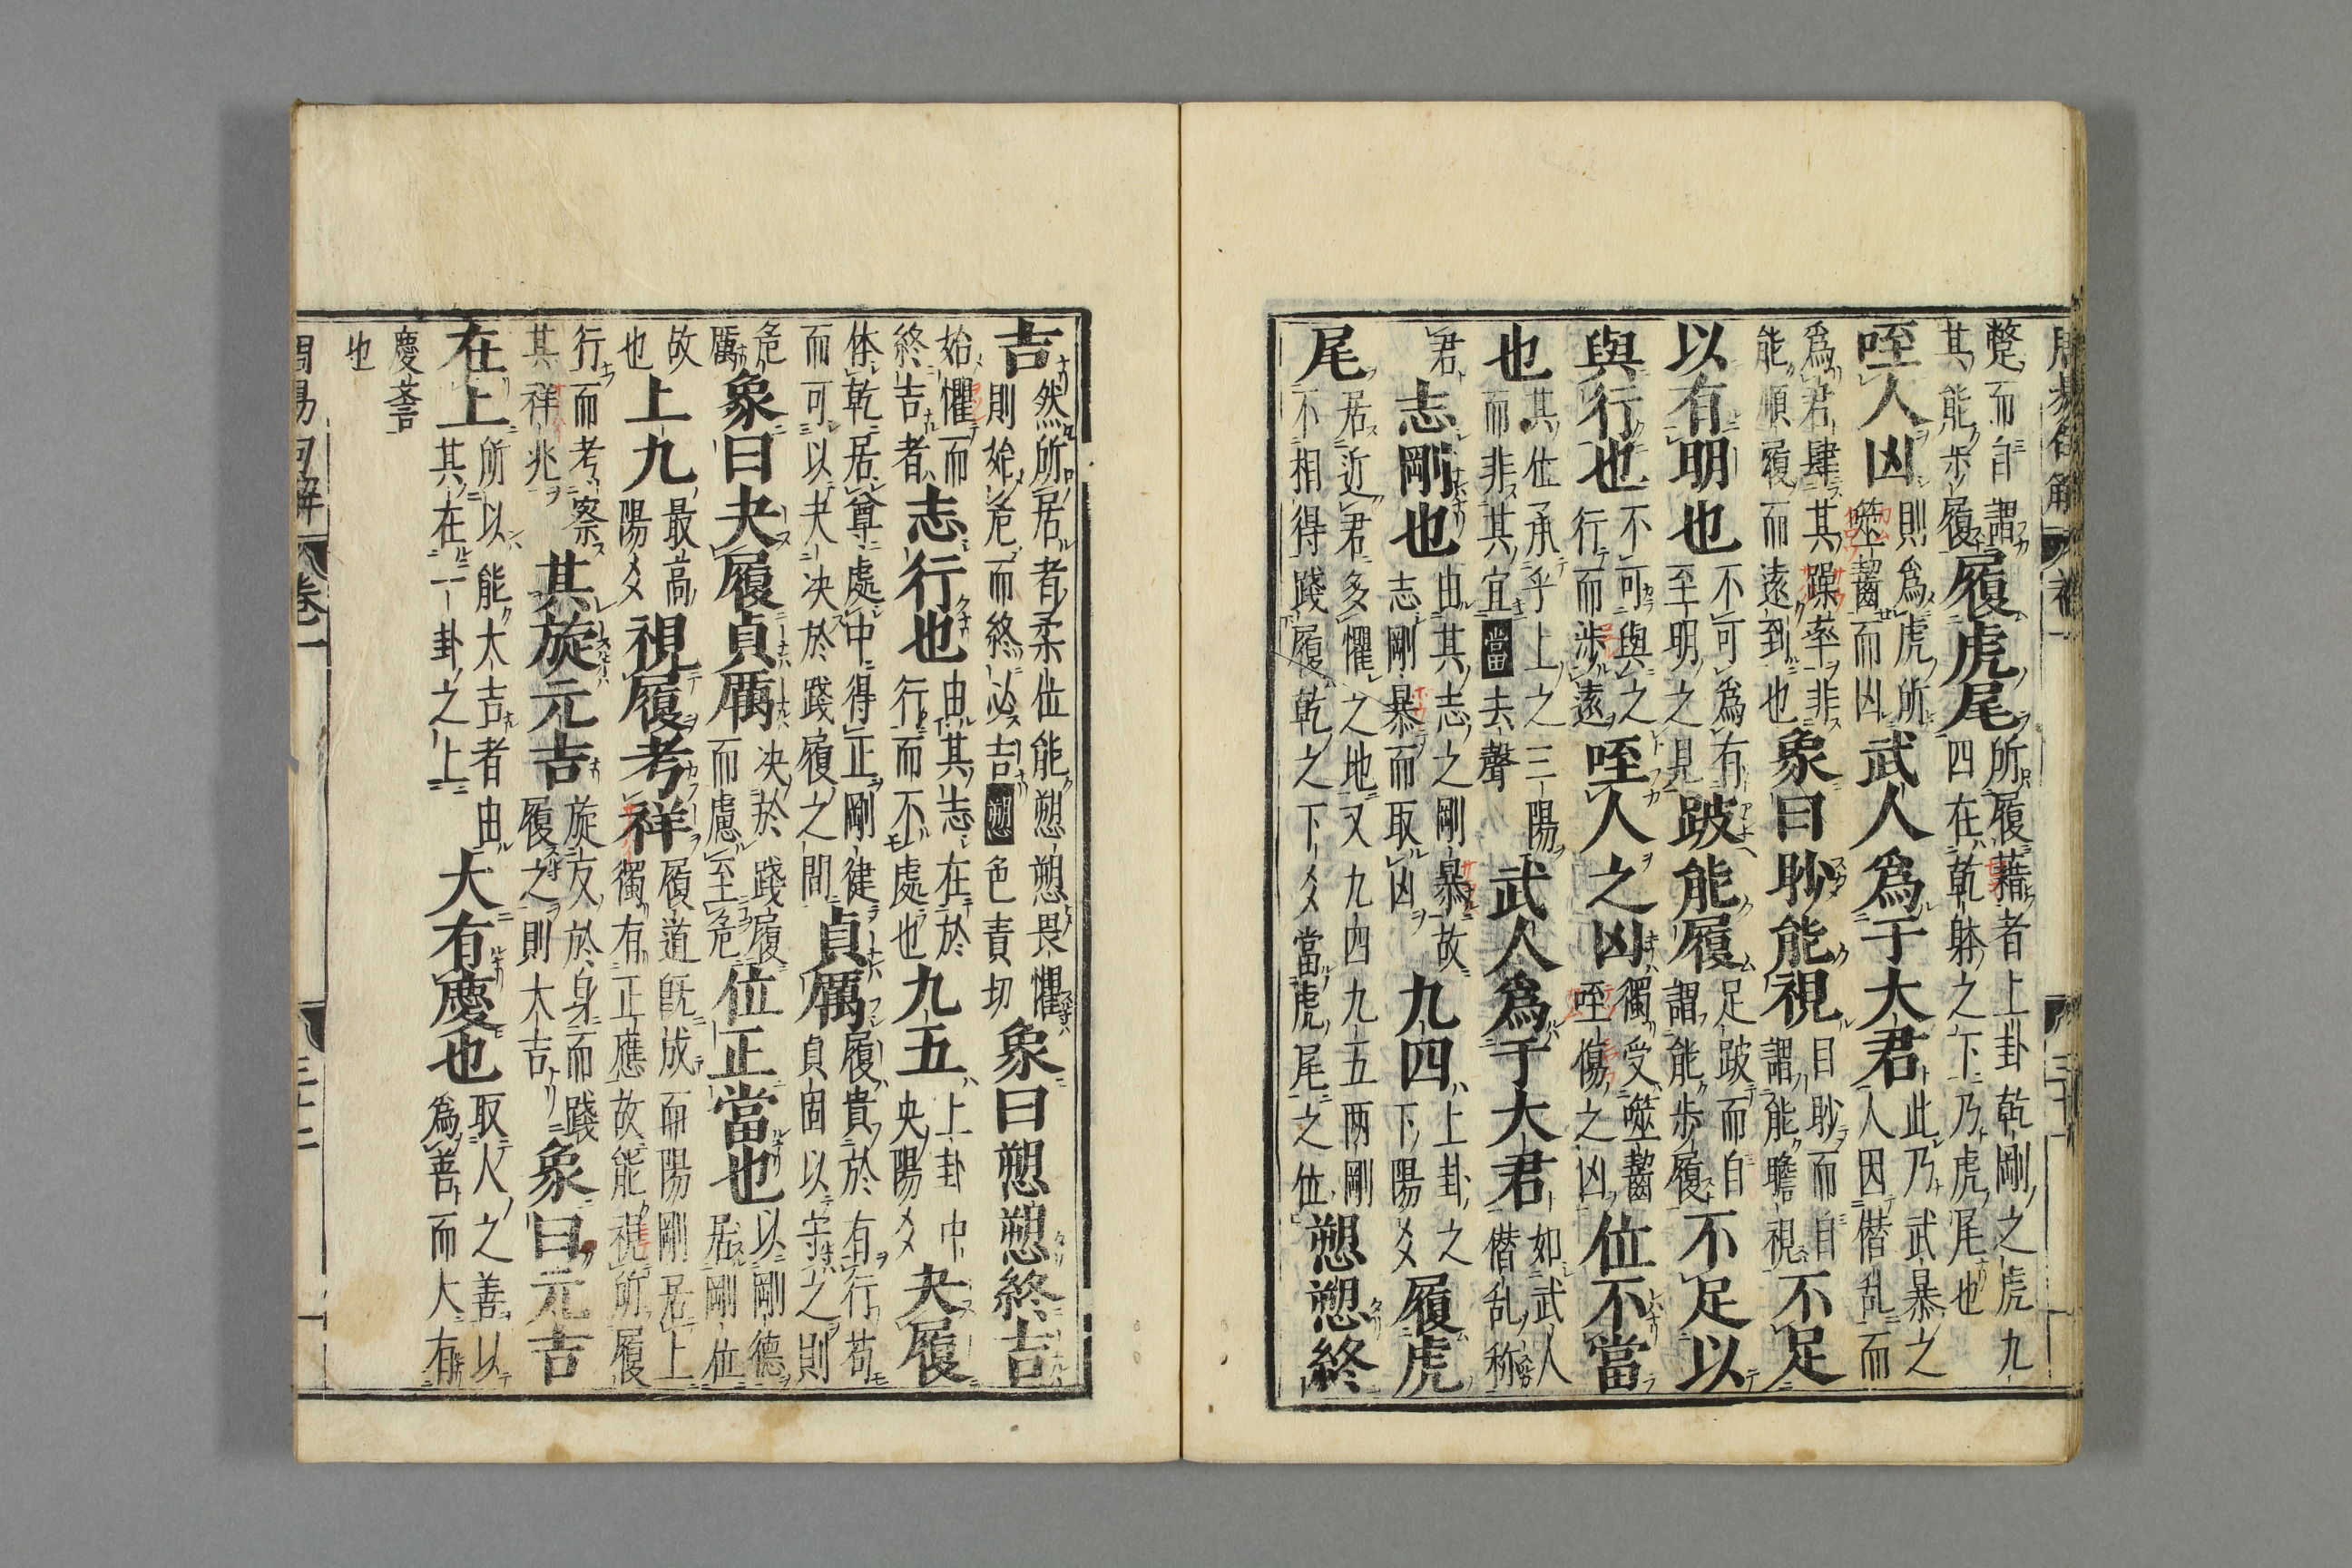 蹩而自謂其能步履履虎尾所履藉者上卦乾剛之虎九四在乾躰之下乃虎尾也
咥人凶則爲虎所噬齧而凶武人爲于大君此乃武暴之人因僭乱而
爲君肆其躁率非能順履而遠到也象曰眇能視目眇而自謂能瞻視不足
以有明也不可爲有至明之見跛能履足跛而自謂能步履不足以
與行也不可與之行而涉遠咥人之凶獨受噬齧咥傷之凶位不當
也其位承乎上之三陽而非其宜當去聲武人爲于大君如武人僭乱称
君志剛也由其志之剛暴故志剛暴而取凶九四上卦之下陽爻履虎
尾居近君多懼之地又九四九五两剛不相得踐履乾之下爻當虎尾之位愬愬終
吉然所居者柔位能愬愬畏懼則始危而終必吉愬色責切象曰愬愬終吉
始懼而終吉者志行也由其志在於行而不處也九五上卦中央陽爻夬履
体乾居尊處中得正剛健而可以夬决於踐履之間貞厲履貴於有行苟貞固以守之則
危厲象曰夬履貞厲决於踐履而慮至危位正當也以剛德居剛位
故也上九最高陽爻視履考祥履道旣成而陽剛居上獨有正應故能視所履
行而考察其祥兆其旋元吉旋反於身而踐履之則大吉象曰元吉
在上所以能大吉者由其在一卦之上大有慶也取人之善以爲善而大有
慶善也
周易句解 卷一 三十二